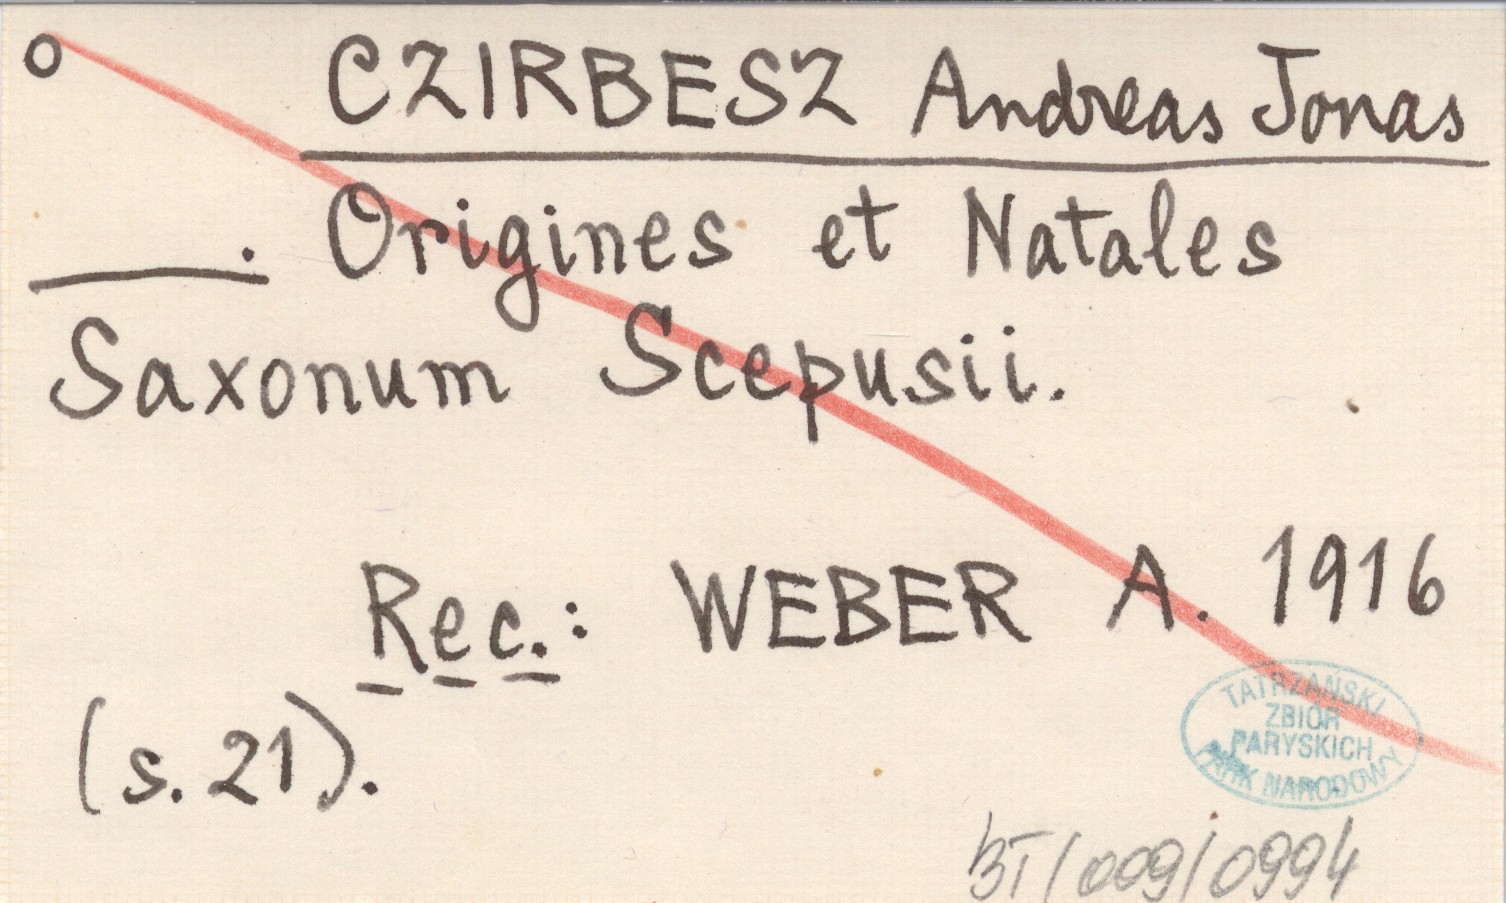 o CZIRBESZ Andreas Jonas
____. Origines et Natales
Saxonum Scepusii.
Rec.: WEBER A. 1916
(s. 21).
TATRZAŃSKI
ZBIÓR
PARYSKICH
PARK NARODOWY
BT/009/0994